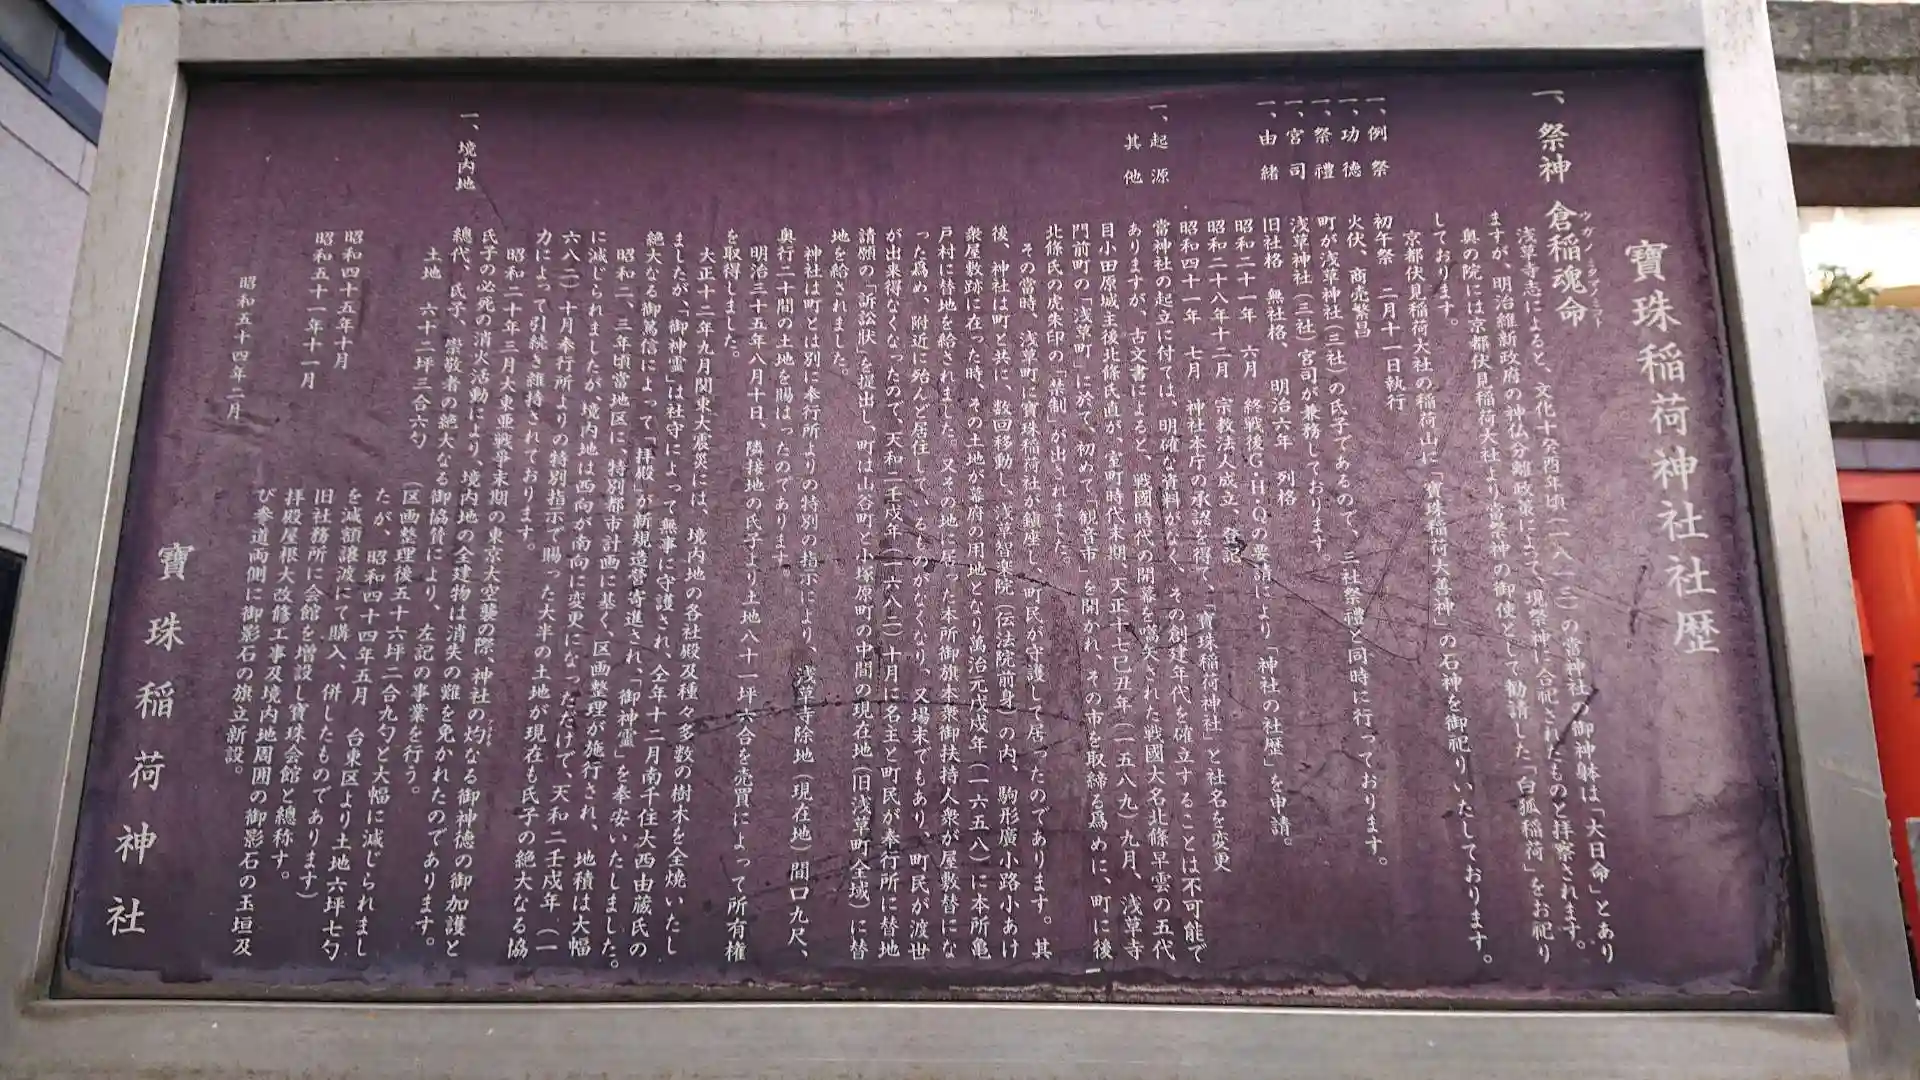 寶珠稲荷神社社歴
一、祭神 倉稲魂命
ウガノミタマノミコト
浅草寺志によると、文化十癸酉年頃(一八一三)の當神社の御神躰は「大日命」とあり
ますが、明治維新政府の神仏分離政策によって、現祭神に合祀されたものと拝察されます。
奥の院には京都伏見稲荷大社より當祭神の御使として勧請した「白狐稲荷」をお祀り
しております。
京都伏見稲荷大社の稲荷山に「寶珠稲荷大善神」の石神を御祀りいたしております。
一、例祭 初午祭 二月十一日執行
一、功德 火伏、商売繁昌
一、祭禮 町が浅草神社(三社)の氏子であるので、三社祭禮と同時に行っております。
一、宮司 浅草神社(三社)宮司が兼務しております。
一、由緒 旧社格 無社格、明治六年 列格
昭和二十一年 六月 終戦後GHQの要請により「神社の社歴」を申請。
昭和二十八年十二月 宗教法人成立、登記
昭和四十一年 七月 神社本庁の承認を得て、「寶珠稲荷神社」と社名を変更
一、起源 當神社の起立に付ては、明確な資料がなく、その創建年代を確立することは不可能で
其他 ありますが、古文書によると、戦國時代の開幕を告げ
目小田原城主後北條氏直が、室町時代末期、天正十七己丑年(一五八九)九月、浅草寺
門前町の「浅草町」に於て、初めて「観音市」を開かれ、その市を取締る爲めに、町に後
北條氏の虎朱印の「禁制」が出されました。
その當時、浅草町に寶珠稲荷社が鎮座し、町民が守護して居ったのであります。其
後、神社は町と共に、数回移動し、浅草智楽院(伝法院前身)の内、駒形廣小路小あげ
衆屋敷跡に在った時、その土地が幕府の用地となり萬治元戊戌年(一六五八)に本所亀
戸村に替地を給されました。又その地に居った本所御旗本衆御扶持人衆が屋敷替にな
った爲め、附近に殆んど居住して、るものがなくなり、又場末でもあり、町民が渡世
が出来得なくなったので、天和二壬戌年(一六八二)十月に名主と町民が奉行所に替地
請願の「訴訟状」を提出し、町は山谷町と小塚原町の中間の現在地(旧浅草町全域)に替
地を給されました。
神社は町とは別に奉行所よりの特別の指示により、浅草寺除地(現在地)間口九尺、
奥行二十間の土地を賜はったのであります。
明治三十五年八月十日、隣接地の氏子より土地八十一坪六合を売買によって所有権
を取得しました。
大正十二年九月関東大震災には、境内地の各社殿及種々多数の樹木を全焼いたし
ましたが、「御神霊」は社守によって無事に守護され、仝年十二月南千住大西由蔵氏の
絶大なる御篤信によって「拝殿」が新規造營寄進され、「御神霊」を奉安いたしました。
昭和二、三年頃當地区に、特別都市計画に基く、区画整理が施行され、地積は大幅
に減じられましたが、境内地は西向が南向に変更になっただけで、天和二壬戌年(一
六八二)十月奉行所よりの特別指示で賜った大半の土地が現在も氏子の絶大なる協
力によって引続き維持されております。
昭和二十年三月大東亜戦争末期の東京大空襲の際、神社の灼なる御神德の御加護と
氏子の必死の消火活動により、境内地の全建物は消失の難を免かれたのであります。
一、境内地 總代、氏子、崇敬者の絶大なる御協賛により、左記の事業を行う。
土地 六十二坪三合六勺 (区画整理後五十六坪二合九勺と大幅に減じられまし
たが、昭和四十四年五月 台東区より土地六坪七勺
を減額譲渡にて購入、併したものであります)
昭和四十五年十月 旧社務所に会館を増設し寶珠会館と總称す。
昭和五十一年十一月 拝殿屋根大改修工事及境内地周囲の御影石の玉垣及
び参道両側に御影石の旗立新設。
昭和五十四年二月
寶珠稲荷神社